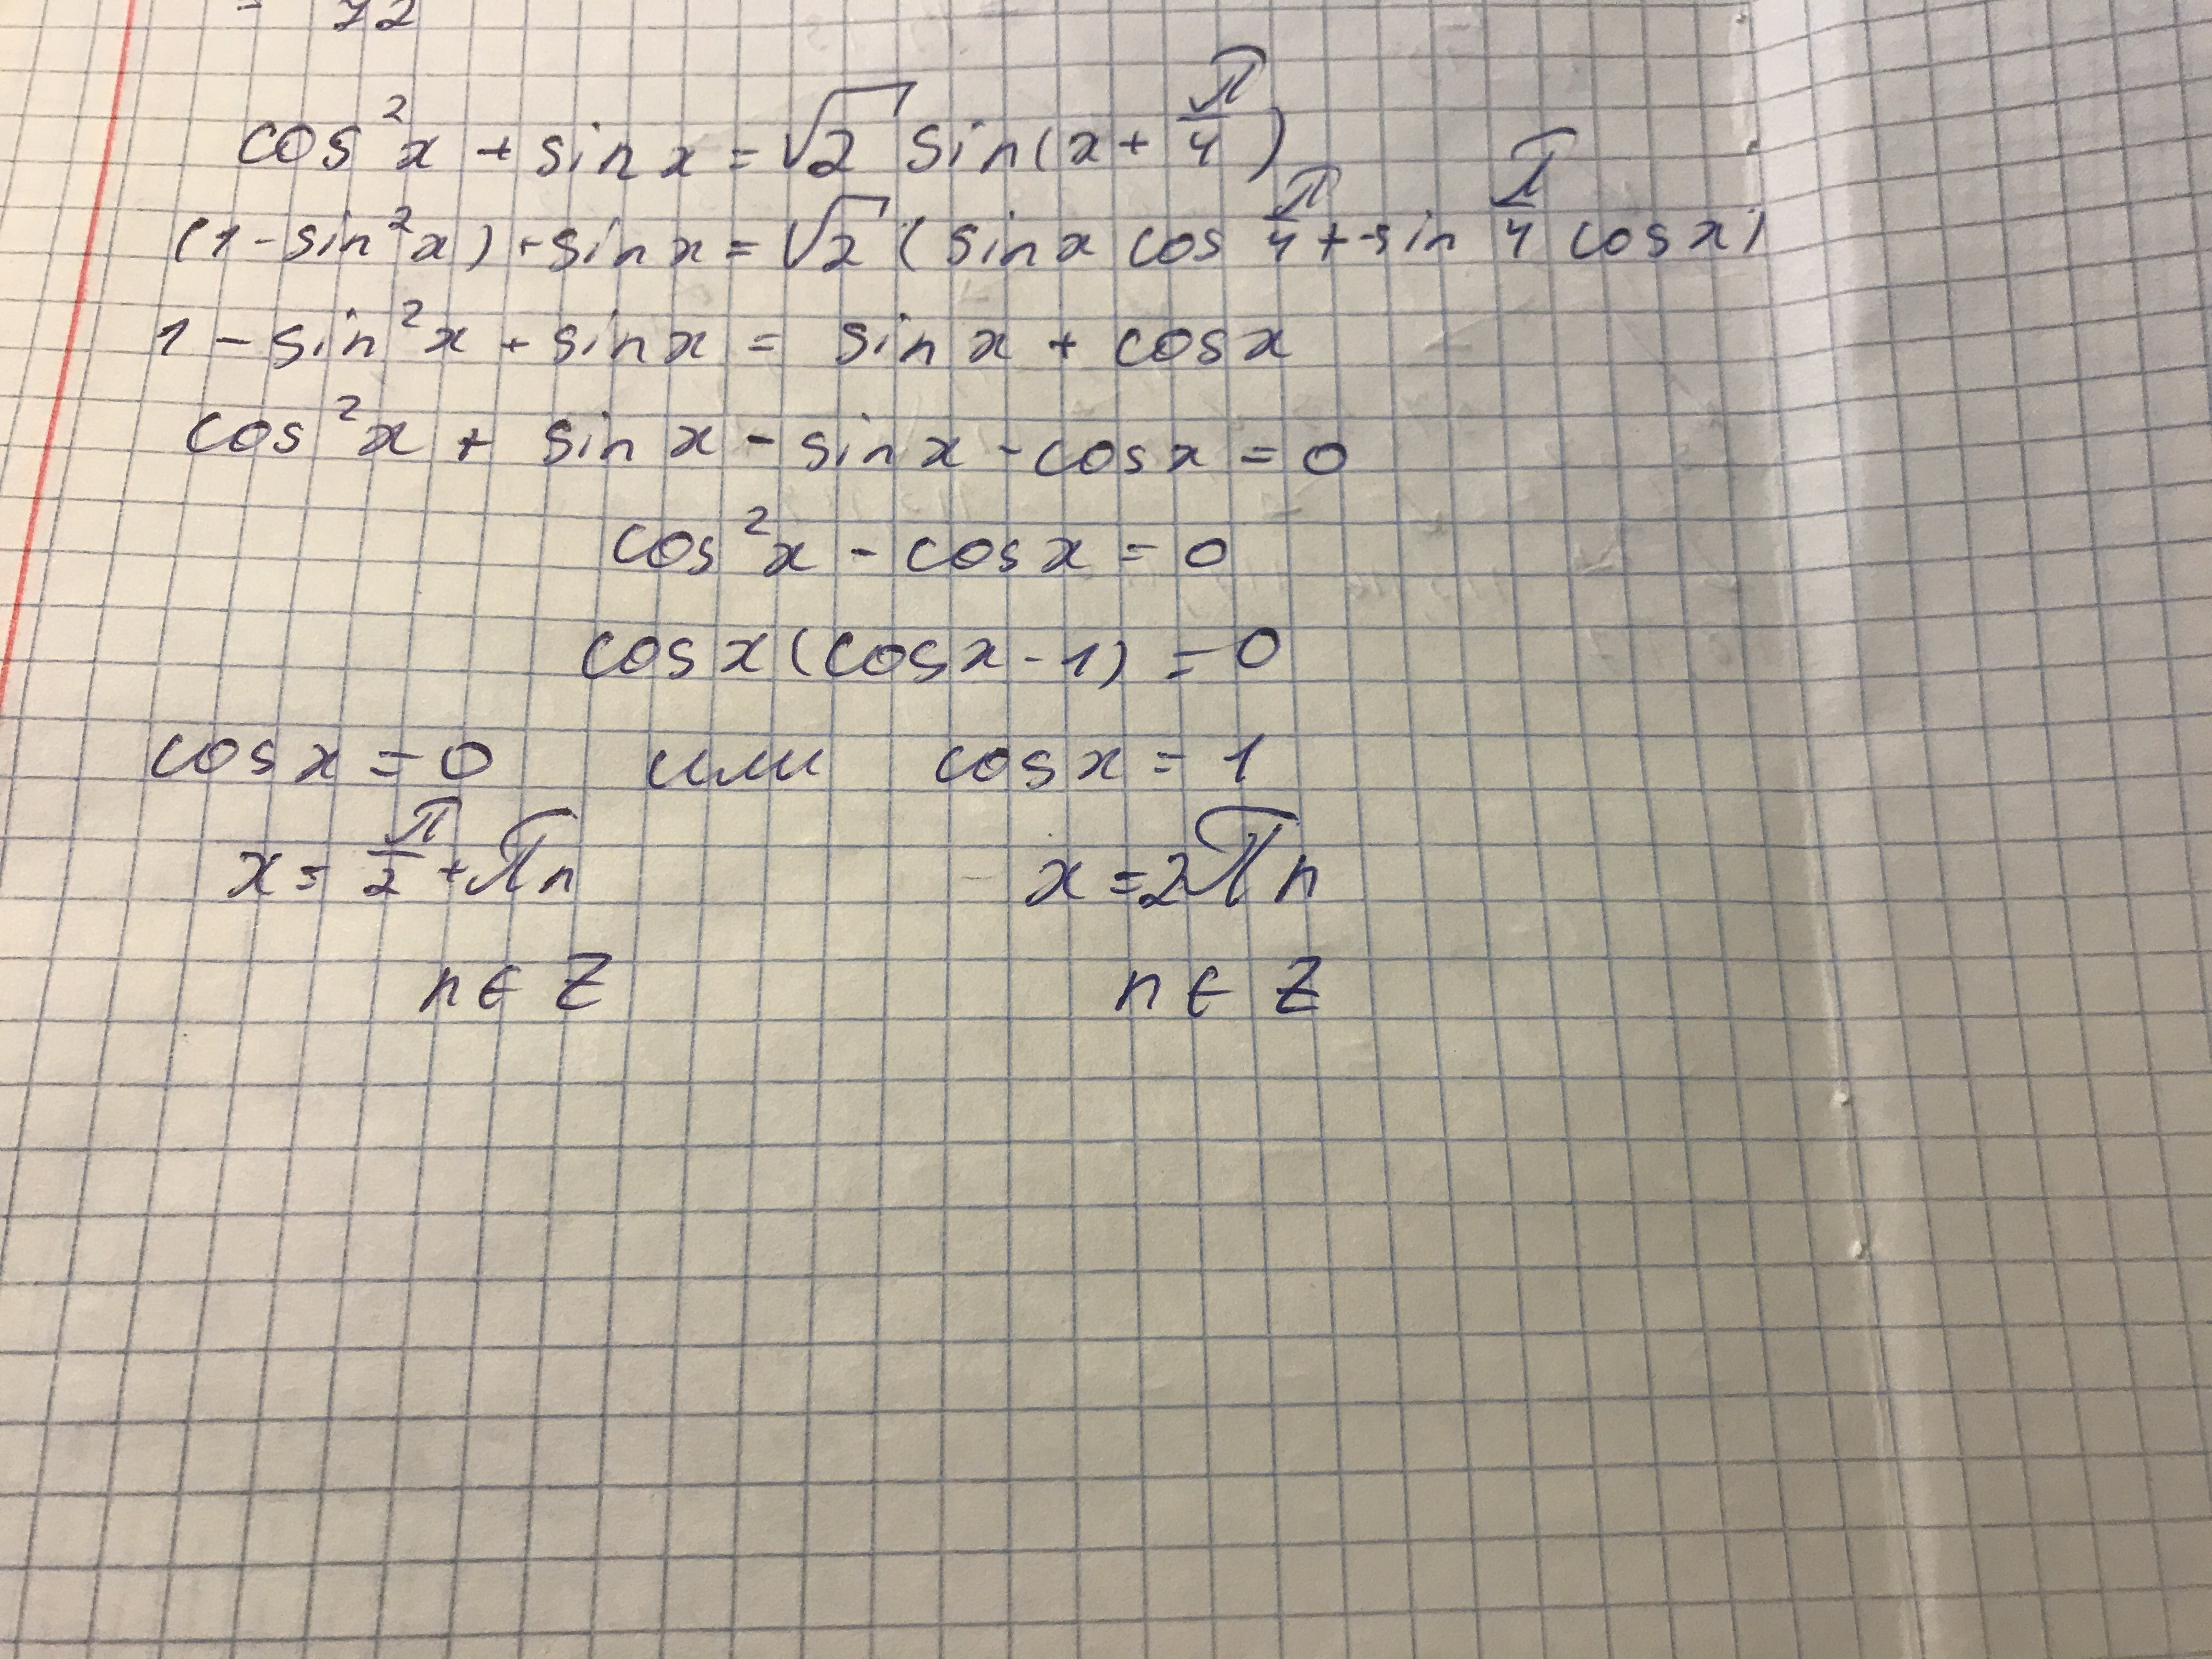 = 72
cos²x + sin x = √2 sin(x + π/4)
(1 - sin²x) + sin x = √2 (sin x cos π/4 + sin π/4 cos x)
1 - sin²x + sin x = sin x + cos x
cos²x + sin x - sin x - cos x = 0
cos²x - cos x = 0
cos x (cos x - 1) = 0
cos x = 0 или cos x = 1
x = π/2 + πn x = 2πn
n ∈ Z n ∈ Z